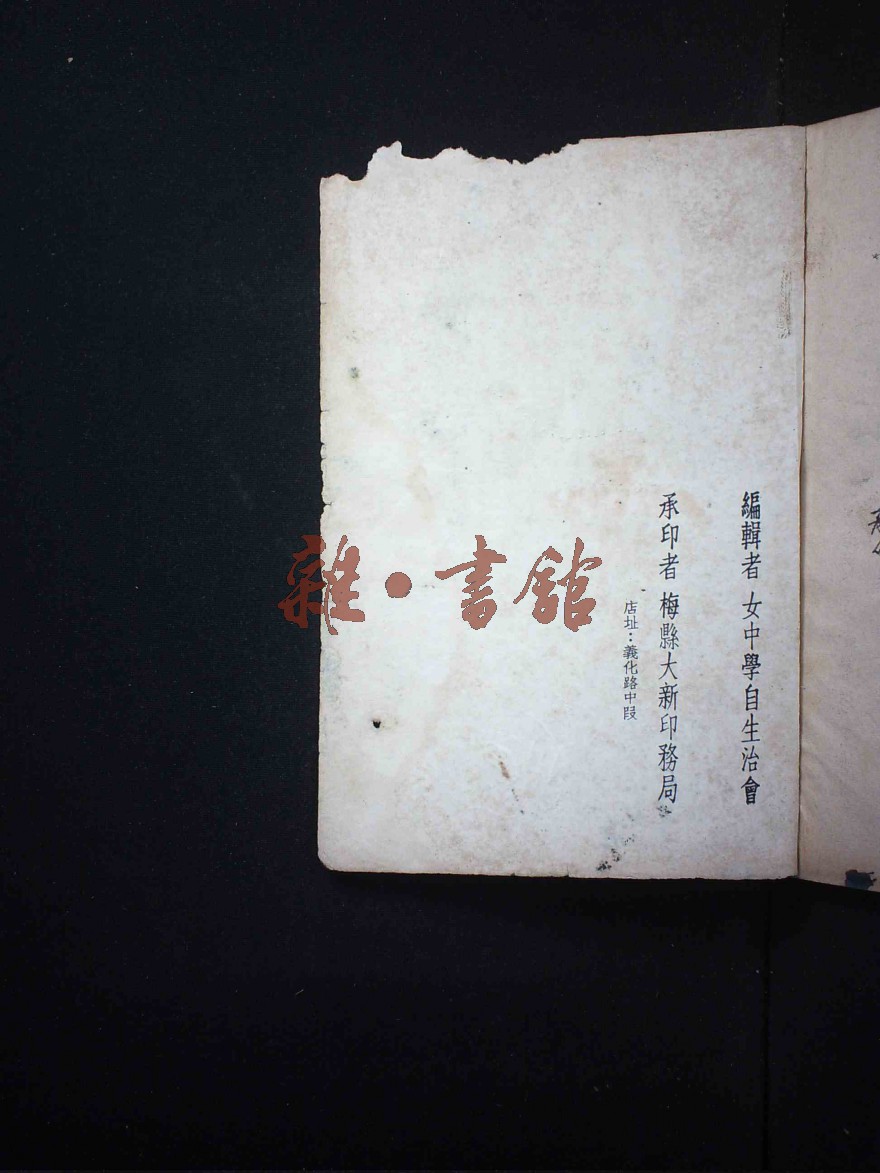 編輯者 女中學自生治會
承印者 梅縣大新印務局
店址：義化路中段
雜·書館